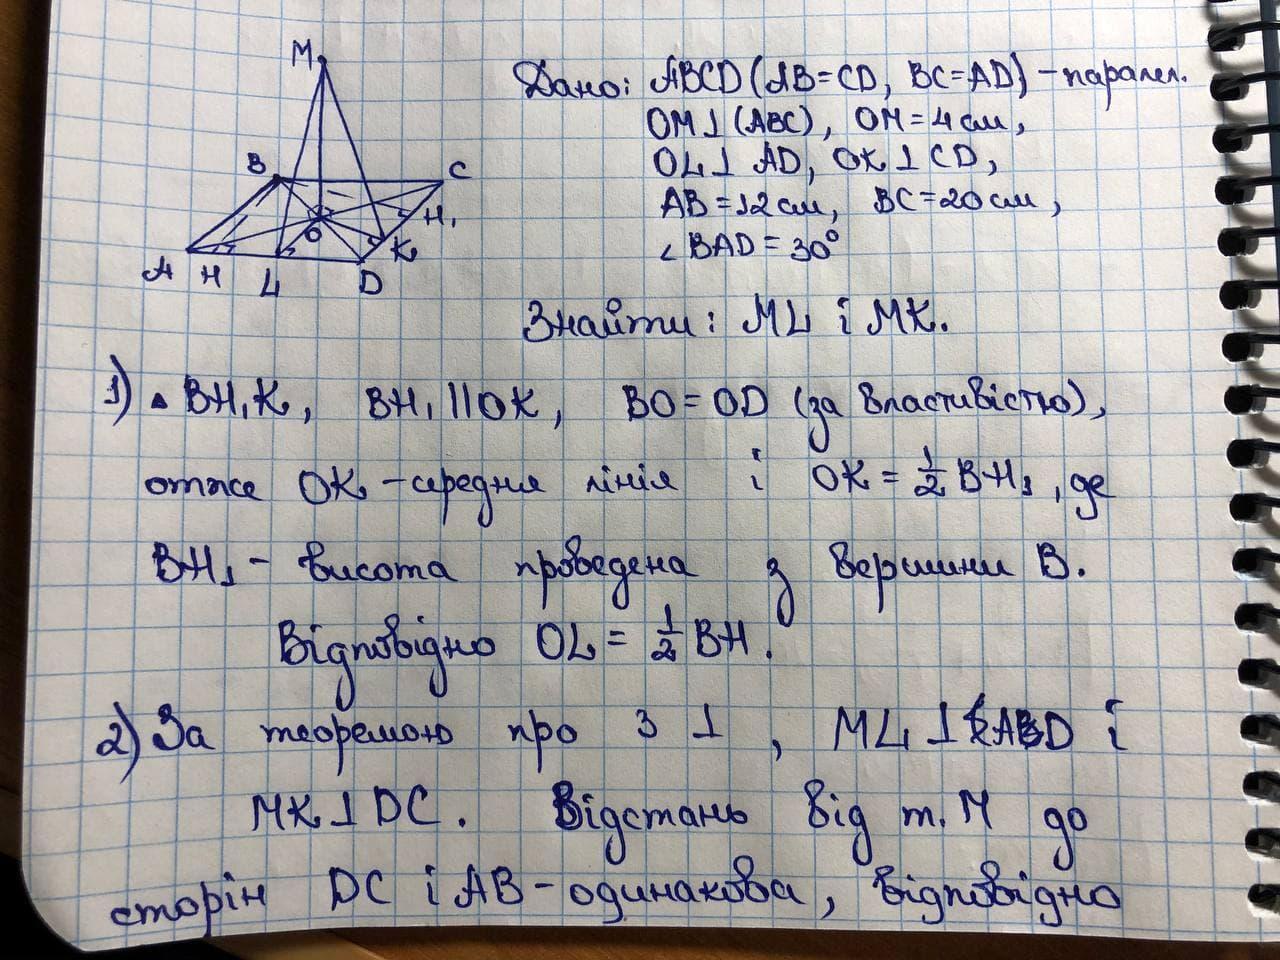 M
B
C
O
H₁
K
A H L D
Дано: ABCD (AB=CD, BC=AD) - паралел.
OM⊥(ABC), OM=4 см,
OL⊥AD, OK⊥CD,
AB=12 см, BC=20 см,
∠BAD=30°
Знайти: ML і MK.
1) ▵ BH₁K, BH₁||OK, BO=OD (за властивістю),
отже OK - середня лінія і OK=½BH₁, де
BH₁ - висота проведена з вершини B.
Відповідно OL=½BH.
2) За теоремою про 3 ⊥, ML⊥AD і
MK⊥DC. Відстань від т. M до
сторін DC і AB - одинакова, відповідно